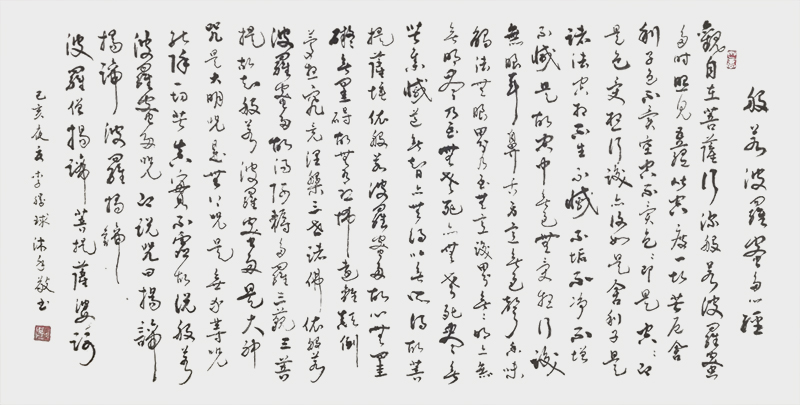 般若波羅蜜多心經
觀自在菩薩行深般若波羅蜜
多時照見五蘊皆空度一切苦厄舍
利子色不異空空不異色色即是空空即
是色受想行識亦復如是舍利子是
諸法空相不生不滅不垢不净不增
不減是故空中無色無受想行識
無眼耳鼻舌身意無色聲香味
觸法無眼界乃至無意識界無無明亦無
無明盡乃至無老死亦無老死盡無
苦集滅道無智亦無得以無所得故菩
提薩埵依般若波羅蜜多故心無罣
礙無罣礙故無有恐怖遠離顛倒
夢想究竟涅槃三世諸佛依般若
波羅蜜多故得阿耨多羅三藐三菩
提故知般若波羅蜜多是大神
咒是大明咒是無上咒是無等等咒
能除一切苦真實不虛故說般若
波羅蜜多咒即說咒曰揭諦
揭諦波羅揭諦
波羅僧揭諦菩提薩婆訶
己亥李球沐手敬書